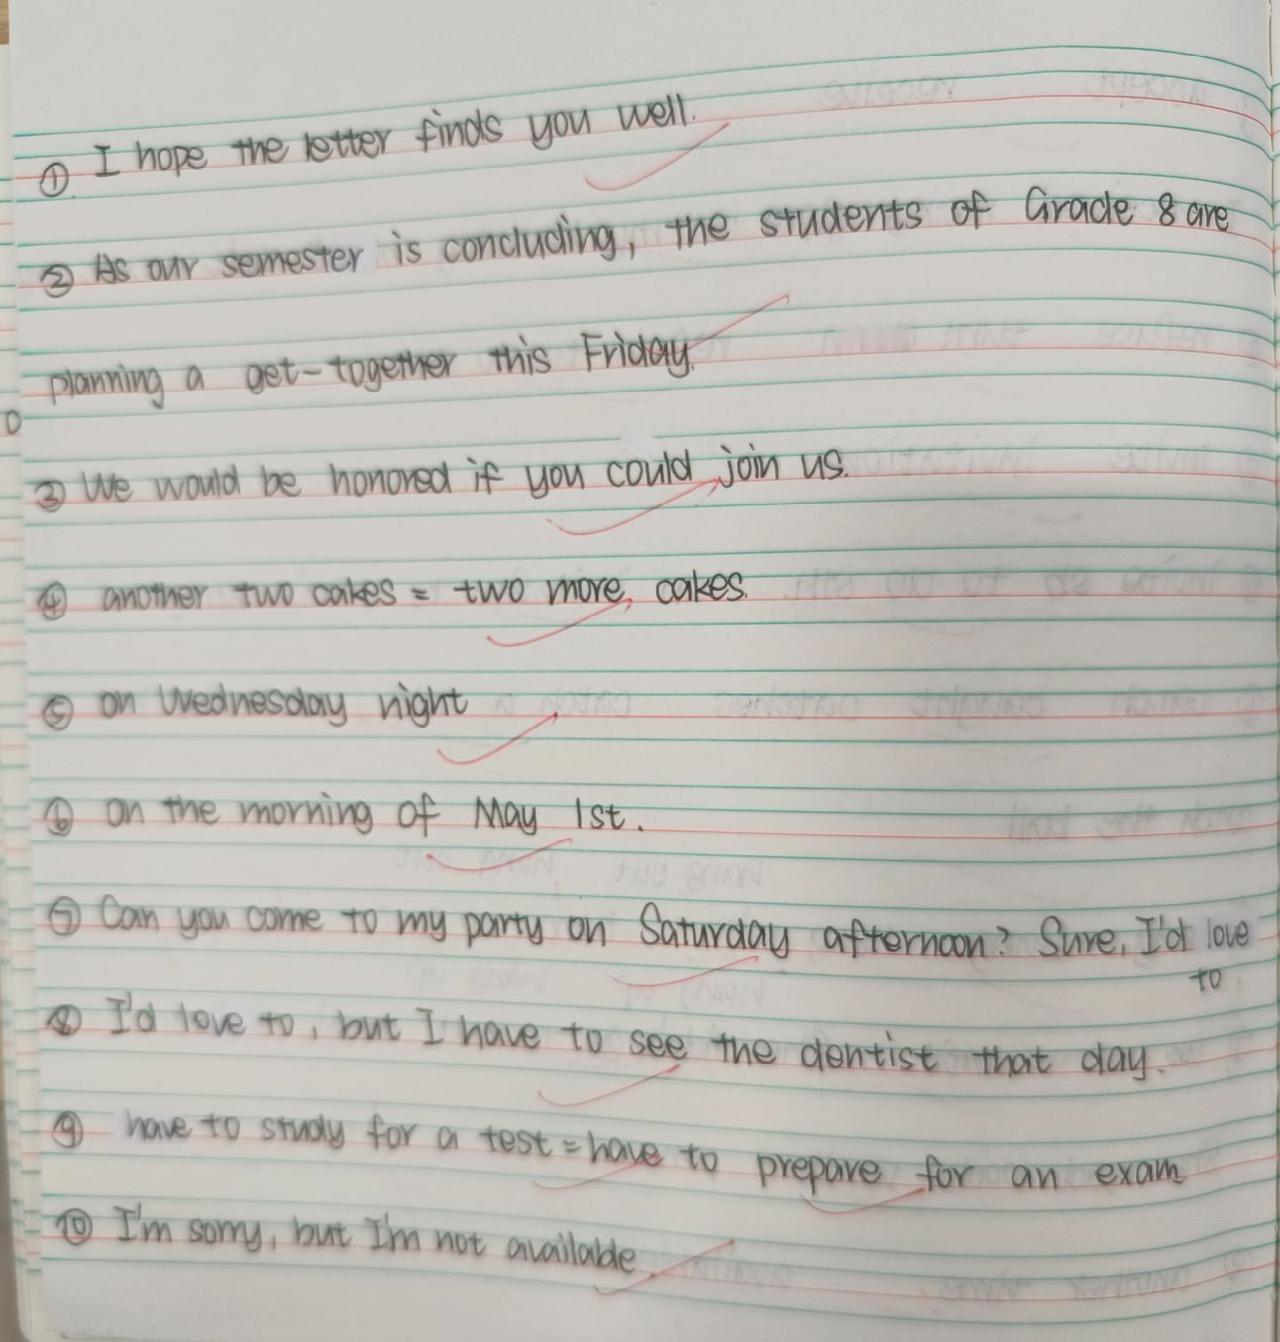 ① I hope the letter finds you well.
② As our semester is concluding, the students of Grade 8 are
planning a get-together this Friday.
③ We would be honored if you could join us.
④ another two cakes = two more cakes.
⑤ on Wednesday night
⑥ on the morning of May 1st.
⑦ Can you come to my party on Saturday afternoon? Sure, I'd love
to
⑧ I'd love to, but I have to see the dentist that day.
⑨ have to study for a test = have to prepare for an exam
⑩ I'm sorry, but I'm not available.